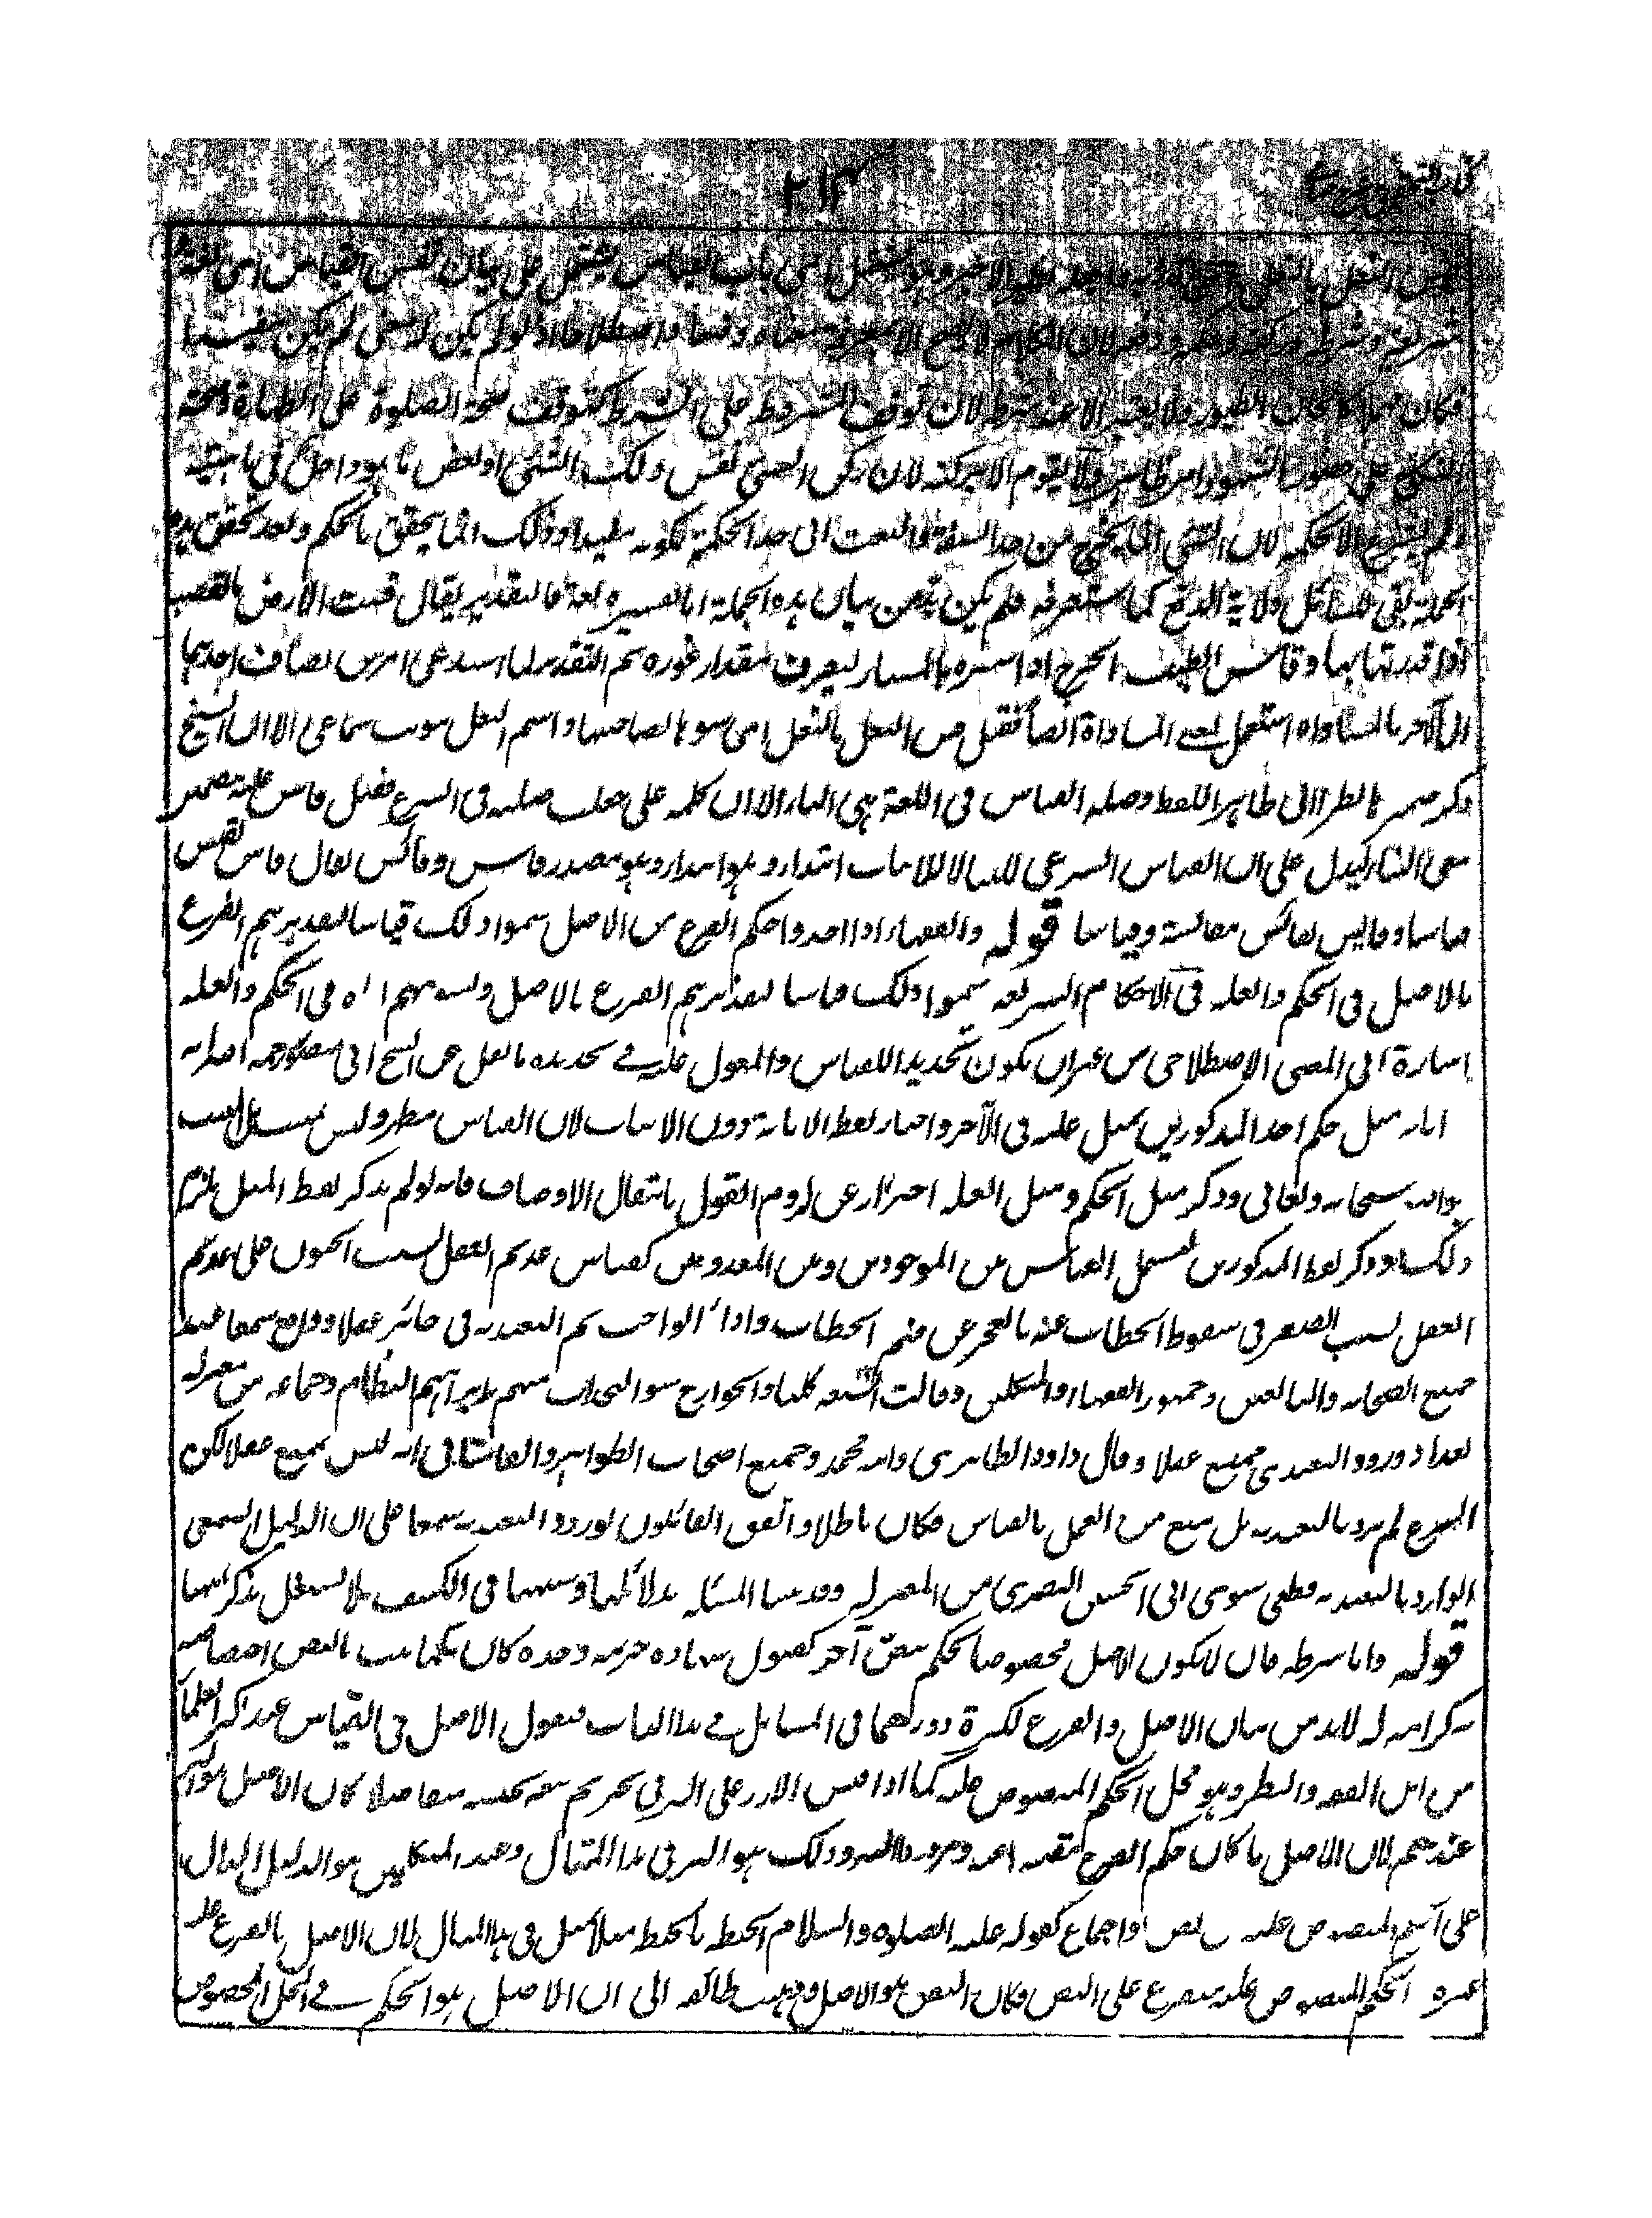 ٢١٣
قس النعل بالنعل باب القياس يشتمل على بيان نفس القياس اى لغة
شريعة وشرطه وركنه وحكمه ودفعه لان الكلام لا يصح الا بمعرفة معناه واصطلاحا اذ لو لم يكن له معنى لم يكن مفيدا
فكان الطيور ولا يعتبر الا عند شرطه لان توقف المشروط على الشرط كتوقف صحة الصلوة على الطهارة وصحة
النكاح على حضور الشهود امر ظاهر ولا يقوم الا بركنه لان ركن الشى نفس ذلك الشى او بعض ما هو داخل فى ماهيته
ولم يشرع الا لحكمه لان الشى انما يخرج من حد السفه والعبث الى حد الحكمة بكونه مفيدا وذلك انما يتحقق بالحكم وبعد تحقق هذه
الجملة بقى للسائل ولاية الدفع كما ستعرفه فلم يكن بد من بيان هذه الجملة اما تفسيره لغة فالتقدير يقال قست الارض بالقصبة
اذا قدرتها بها وقاس الطبيب الجرح اذا سبره بالمسبار ليعرف مقدار غوره ثم التقدير لما استدعى امرين يضاف احدهما
الى الآخر بالمساواة استعمل بمعنى المساواة ايضا فقيل قس النعل بالنعل اى سوها بصاحبها واسم النعل مونث سماعى الا ان الشيخ
ذكر ضميره نظرا الى ظاهر اللفظ وصلة القياس فى اللغة هى الباء الا ان كلمة على جعلت صلته فى الشرع فقيل قاس عليه
معنى البناء ليدل على ان القياس الشرعى للبناء لا للاثبات ابتداء وهو مصدر قاس وقائس يقال قاس يقيس
قياسا وقايس يقائس مقائسة وقياسا قوله والفقهاء اذا اخذوا حكم الفرع من الاصل سموا ذلك قياسا لتقديرهم الفرع
بالاصل فى الحكم والعلة فى الاحكام الشرعية سموا ذلك قياسا لتقديرهم الفرع بالاصل وتسويتهم اياه فى الحكم والعلة
اشارة الى المعنى الاصطلاحى من غير ان يكون تحديدا للقياس والمعول عليه فى تحديده ما نقل عن الشيخ ابى منصور رحمه الله انه
ابانة مثل حكم احد المذكورين بمثل علته فى الآخر واختار لفظ الابانة دون الاثبات لان القياس مظهر وليس بمثبت بل المثبت
هو الله سبحانه وتعالى وذكر مثل الحكم ومثل العلة احترازا عن لزوم القول بانتقال الاوصاف فانه لو لم يذكر لفظ المثل يلزم
ذلك وذكر لفظ المذكورين ليشمل القياس بين الموجودين وبين المعدومين كقياس عديم العقل بسبب الجنون على عديم
العقل بسبب الصغر فى سقوط الخطاب عنه بالعجز عن فهم الخطاب واداء الواجب ثم التعبد به فى جائز عقلا وواقع سمعا عند
جميع الصحابة والتابعين وجمهور الفقهاء والمتكلمين وقالت الشيعة كلها والخوارج سوى النجدات منهم وابراهيم النظام وجماعة من معتزلة
بغداد ورود التعبد به ممتنع عقلا وقال داود الظاهرى وابنه محمد وجميع اصحاب الظواهر والقاشانى انه ليس بممتنع عقلا لكن
الشرع لم يرد بالتعبد به بل منع من العمل بالقياس فكان باطلا واتفق القائلون بورود التعبد به سمعا على ان الدليل السمعى
الوارد بالتعبد به قطعى سوى ابى الحسين البصرى من المعتزلة وقد بينا المسئلة بدلائلها وشبهها فى الكشف فلا نشتغل بذكرها
قوله واما شرطه فان لا يكون الاصل مخصوصا بحكمه بنص آخر كقبول شهادة خزيمة وحده كان حكما ثبت بالنص اختصاصه
به كرامة له لا بد من بيان الاصل والفرع لكثرة دورهما فى المسائل فى هذا الباب فنقول الاصل فى القياس عند اكثر العلماء
من اهل الفقه والنظر هو محل الحكم المنصوص عليه كما اذا قيس الارز على البر فى تحريم بيعه بجنسه متفاضلا كان الاصل هو البر
عندهم لان الاصل ما كان حكم الفرع مقتبسا منه ومردودا اليه وذلك هو البر فى هذا المثال وعند المتكلمين هو الدليل الدال
على الحكم المنصوص عليه من نص او اجماع كقوله عليه الصلوة والسلام الحنطة بالحنطة مثلا بمثل فى هذا المثال لان الاصل ما تفرع عليه
غيره والحكم المنصوص عليه متفرع على النص فكان النص هو الاصل وذهبت طائفة الى ان الاصل هو الحكم فى المحل المنصوص